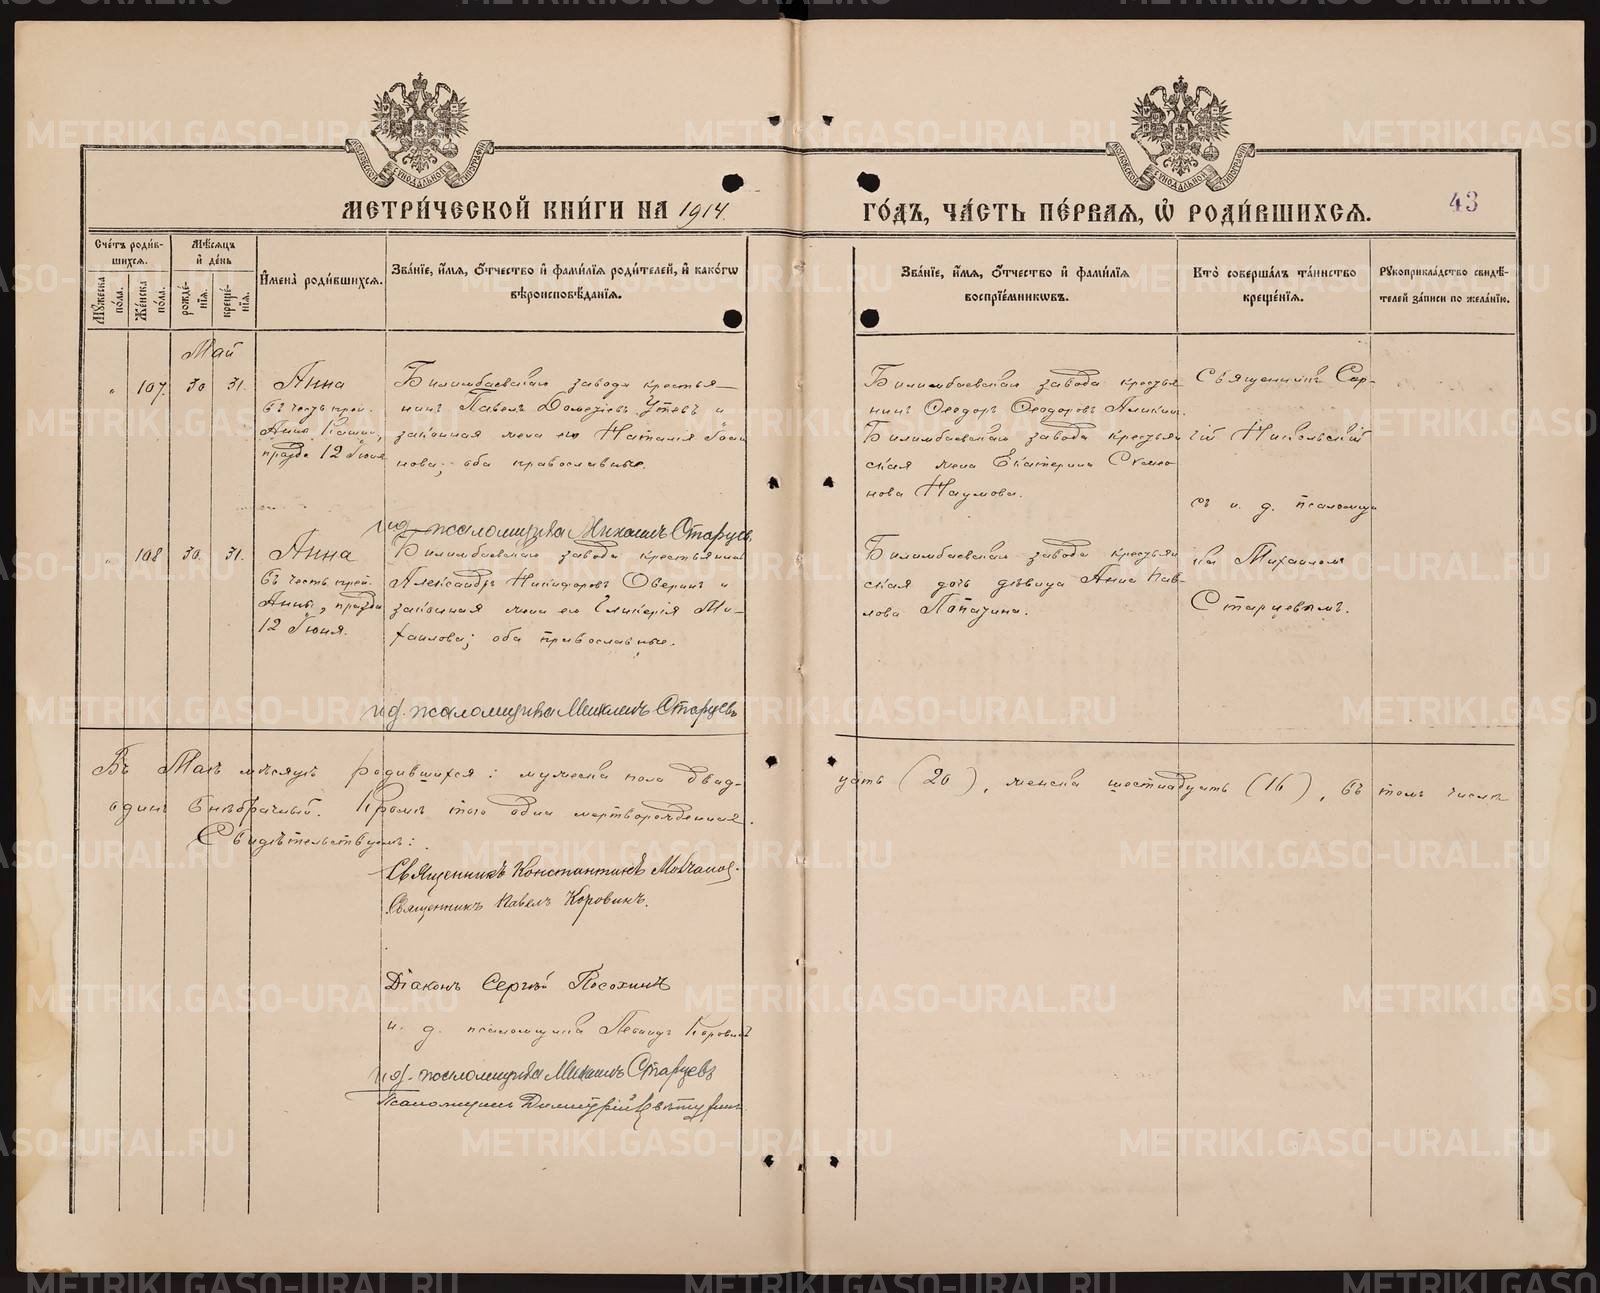 МЕТРИ́ЧЕСКОЙ КНИ́ГИ НА 1914.
ГО́ДЪ, ЧА́СТЬ ПЕ́РВАЯ, Ѡ҆ РОДИ́ВШИХСЯ.
43
Сче́тъ роди́вшихся.
Мѣ́сяцъ и҆ де́нь
Мꙋ́жеска по́ла.
Же́нска по́ла.
рожде́нїя.
креще́нїя.
И҆мена̀ роди́вшихся.
Зва́нїе, и҆́мя, ѻ҆́тчество и҆ фами́лїя роди́телей, и҆ како́гѡ
вѣроисповѣ́данїя.
Зва́нїе, и҆́мя, ѻ҆́тчество и҆ фами́лїя
воспрїе́мникѡвъ.
Кто̀ соверша́лъ та́инство
креще́нїя.
Рꙋкоприкла́дство свидѣ́-
телей за́писи по жела́нїю.
Май
" 107. 30 31.
Анна
въ честь преп.
Анны Кашин,
празд 12 Іюня
Билимбаевскаго завода крестья-
нинъ Павелъ Дометіевъ Утевъ и
законная жена его Наталія Іоан
нова; оба православные.
и.д. псаломщика Михаилъ Старцевъ
Билимбаевскаго завода крестья
нинъ Ѳеодоръ Ѳеодоровъ Аликин.
Билимбаевскаго завода крестьян
ская жена Екатерина Симео
нова Наумова.
Священникъ Сер-
гій Никольскій
съ и. д. псаломщи
ка Михаиломъ
Старцевымъ.
" 108 30. 31.
Анна
въ честь преп.
Анны, праздн
12 Іюня.
Билимбаевскаго завода крестьянинъ
Александръ Никифоровъ Оверинъ и
законная жена его Гликерія Ми-
хаилова; оба православные.
и.д. псаломщика Михаилъ Старцевъ
Билимбаевскаго завода крестьян
ская дочь дѣвица Анна Пав-
лова
Въ Маѣ мѣсяцѣ родившихся: мужеска пола двад-
цать (20), женска шестнадцать (16), въ томъ числѣ
одинъ внѣбрачный. Кромѣ того одна мертворожденная.
Свидѣтельствуемъ:
Священникъ Константинъ Молчанов.
Священникъ Павелъ Коровинъ.
Діаконъ Сергѣй Посохинъ
и. д. псаломщика Леонидъ Коровинъ
и.д. псаломщика Михаилъ Старцевъ
Псаломщикъ Димитрій
METRIKI.GASO-URAL.RU